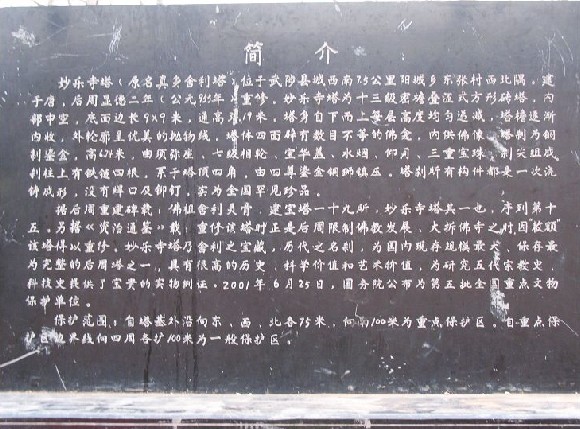 简 介
妙乐寺塔(原名真身舍利塔)位于武陟县城西南7.5公里阳城乡东张村西北隅。建
于唐,后周显德二年(公元955年)重修。妙乐寺塔为十三级密檐叠涩式方形砖塔,内
部中空,底面边长9×9米,通高 19米,塔身自下而上叠层高度均匀递减,塔檐逐渐
内收,外轮廓呈优美的抛物线。塔体四面辟有数目不等的佛龛,内供佛像。塔刹乃铜
制鎏金,高 米,由须弥座、七级相轮、宝华盖、水烟、仰月、三重宝珠、刹尖组成。
刹柱上有铁链四根,系于塔顶四角,由四尊鎏金铜狮镇压。塔刹所有构件都是一次浇
铸成形,没有焊口及铆钉,实为全国罕见珍品。
据后周重建碑载:佛祖舍利灵骨,建宝塔一十九所,妙乐寺塔其一也,序列第十
五。另据《资治通鉴》载,重修该塔时正是后周限制佛教发展、大拆佛寺之时,因敕额
该塔得以重修。妙乐寺塔乃舍利之宝藏,历代之名刹,为国内现存规模最大、保存最
为完整的后周塔之一,具有很高的历史、科学价值和艺术价值,为研究五代宗教史、
科技史提供了宝贵的实物例证。2001年6月25日,国务院公布为第五批全国重点文物
保护单位。
保护范围:自塔基外沿向东、西、北各75米,向南100米为重点保护区。自重点保
护区边界线向四周各扩100米为一般保护区。